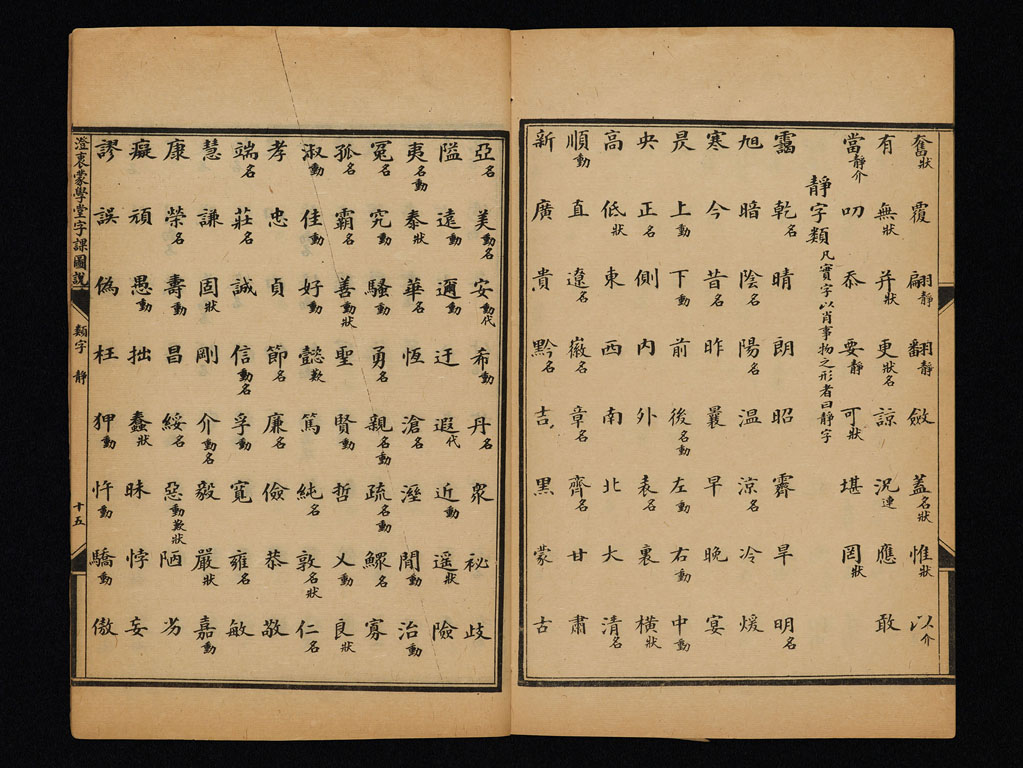 奮狀 覆 翩靜 翻靜 斂 蓋名狀 惟狀 以介
有 無狀 并狀 更狀名 諒 況連 應 敢
當靜介 叨 忝 要靜 可狀 堪 罔狀
靜字類 凡實字以肖事物之形者曰靜字
靄 乾名 晴 朗 昭 霽 旱 明名
旭 暗 陰名 陽名 温 涼名 冷 煖
寒 今 昔名 昨 曩 早 晚 宴
昃 上動 下動 前 後名動 左動 右動 中動
央 正名 側 內 外 表名 裏 橫狀
高 低狀 東 西 南 北 大 清名
順動 直 遼名 徽名 章名 齊名 甘 肅
新 廣 貴 黔名 吉 黑 蒙 古
亞名 美動名 安動代 希動 丹名 衆 祕 歧
隘 遠動 邇動 迂 遐代 近動 遥狀 險
夷名動 泰狀 華名 恆 滄名 溼 閒動 治動
冤名 究動 騷動 勇名 親名動 疏名動 鰥名 寡
孤名 霸名 善動狀 聖 賢動 哲 乂動 良狀
淑動 佳動 好動 懿歎 篤 純名 敦名狀 仁名
孝 忠 貞 節名 廉名 儉 恭 敬
端名 莊名 誠 信動名 孚動 寬 雍名 敏
慧 謙 固狀 剛 介動名 毅 嚴狀 嘉動
康 榮名 壽動 昌 綏名 惡動歎狀 陋 劣
癡 頑 愚動 拙 蠢狀 昧 悖 妄
謬 誤 偽 枉 狎動 忤動 驕動 傲
澄衷蒙學堂字課圖說
類字 靜
十五